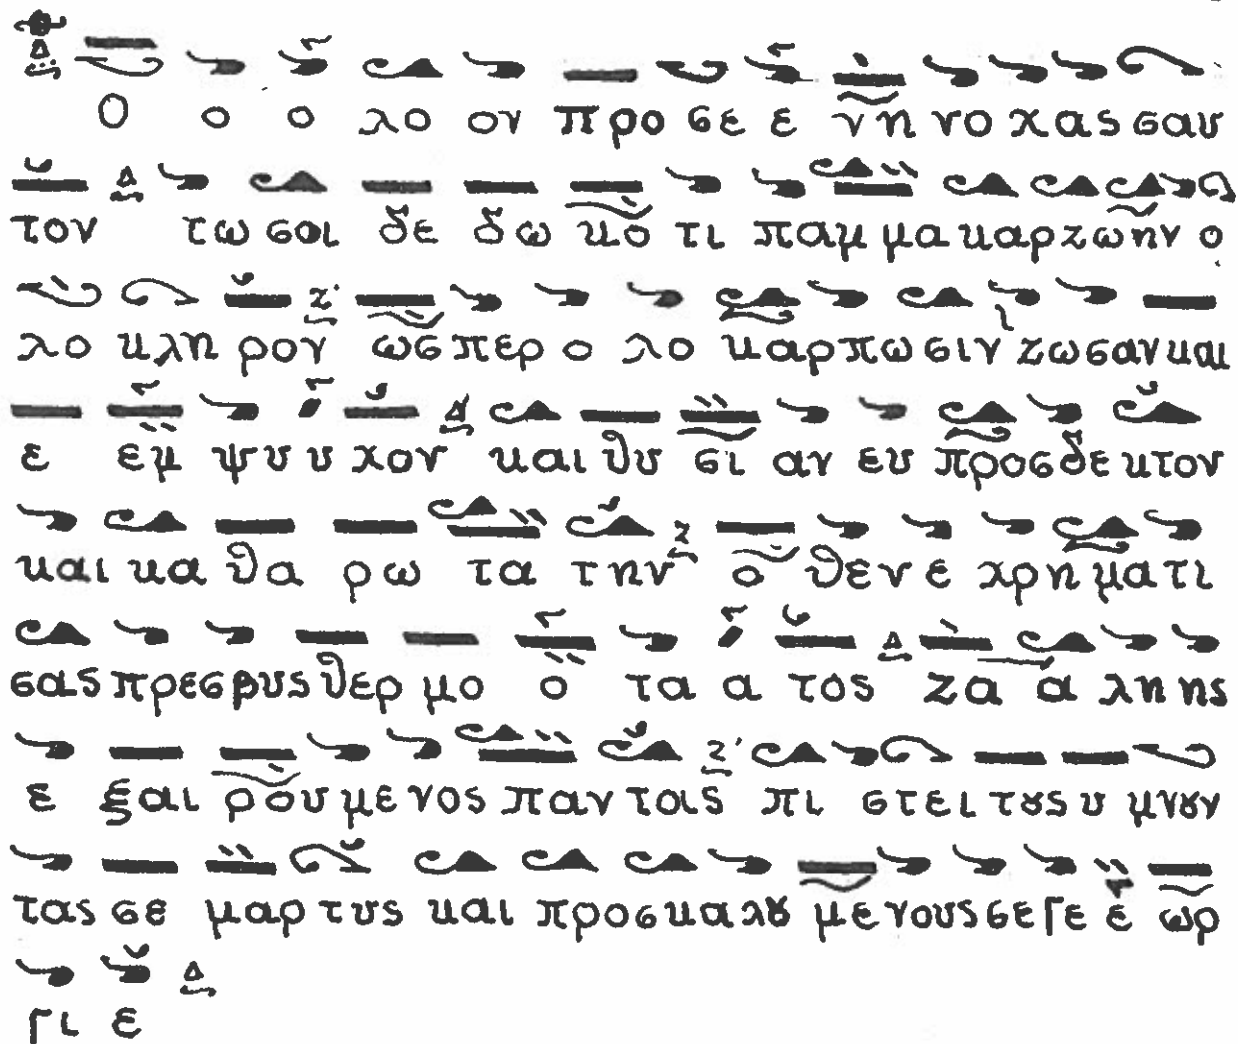 Ο ο ο λο ον προ σε ε νη νο χας σαυ
τον τω σοι δε δω κό τι παμ μα καρ ζω ην ο
λο κλη ρον ως περ ο λο καρ πω σιν ζω σαν και
ε εμ ψυ υ χον και θυ σι αν ευ προσ δε κτον
και κα θα ρω τα την ο θεν ε χρη μα τι
σας πρεσ βυς θερ μο ο τα α τος ζα α λη ης
ε ξαι ρου με νος παν τας πι στει τȣς υ μνȣν
τας σε μαρ τυς και προσ κα λȣ με νους σε Γε ε ωρ
γι ε